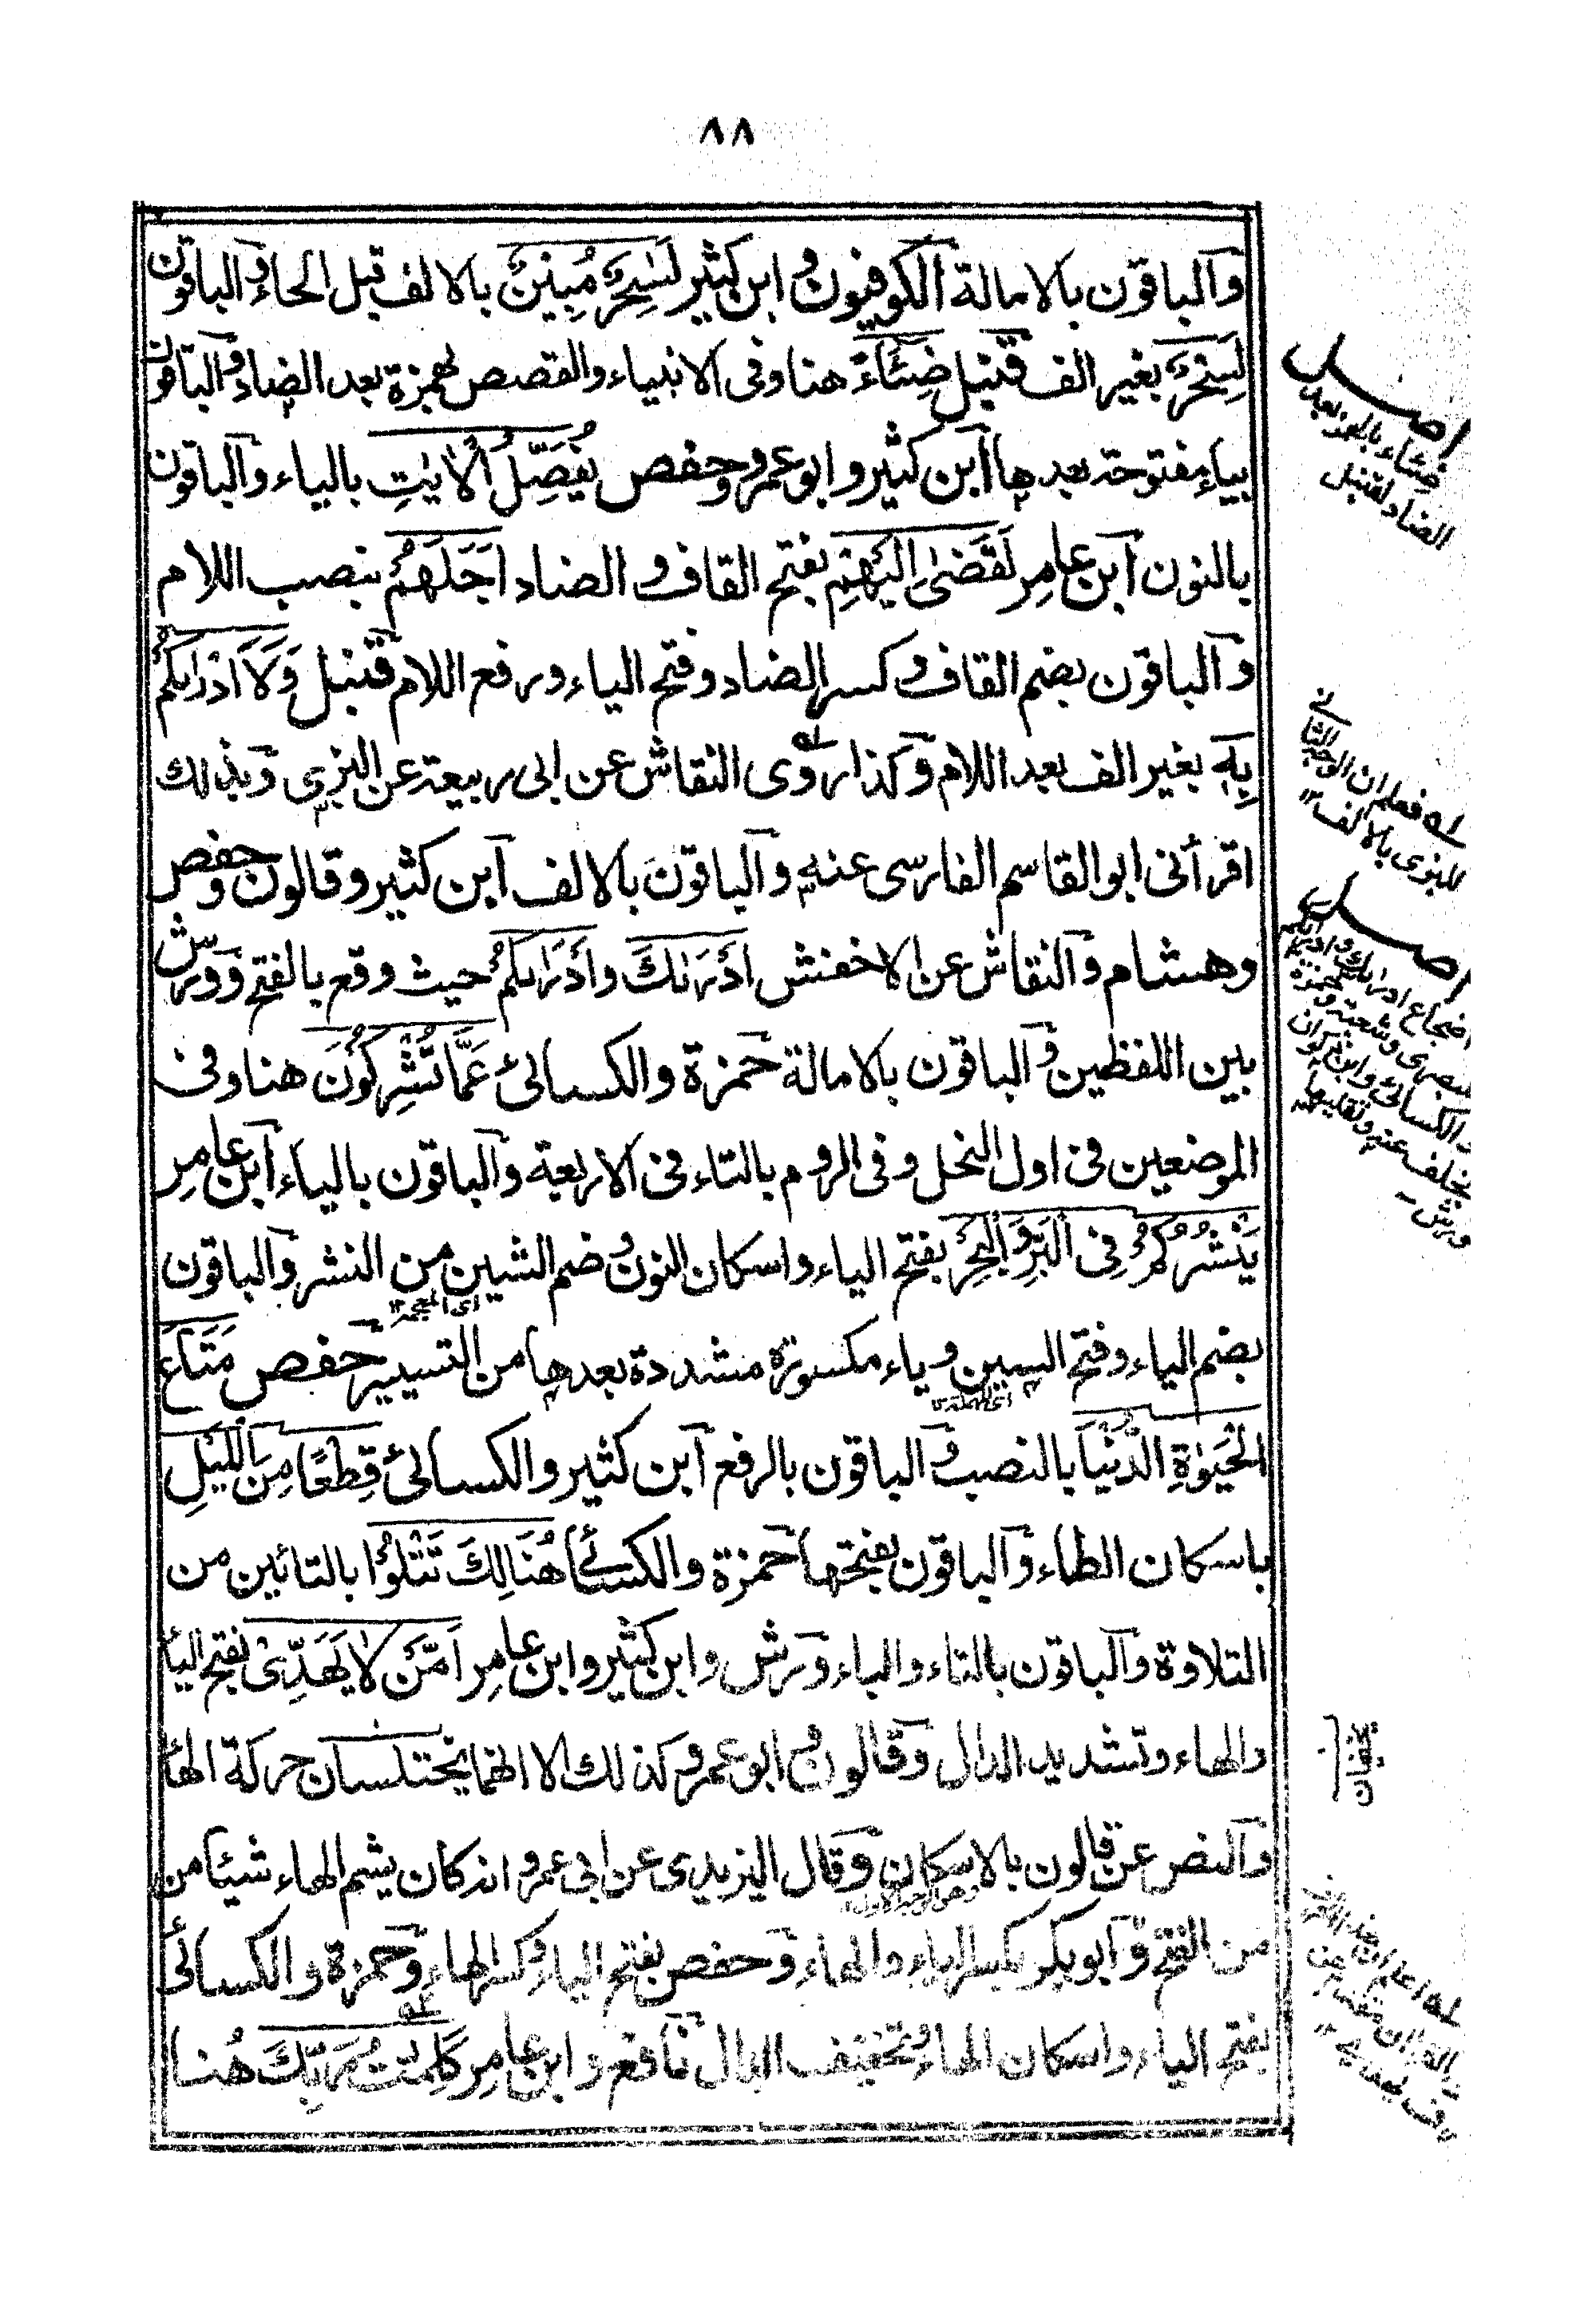 ٨٨
والباقون بالامالة الكوفيون وابن كثير لَسٰحِرٌ مُبِينٌ بالالف قبل الحاء والباقون
لَسِحْرٌ بغير الف قنبل ضِئَاءً هنا وفى الانبياء والقصص بهمزة بعد الضاد والباقون
بياء مفتوحة بعدها ابن كثير وابو عمرو وحفص يُفَصِّلُ الْاٰيٰتِ بالياء والباقون
بالنون ابن عامر لَقَضٰى اِلَيْهِمْ بفتح القاف والضاد اَجَلَهُمْ بنصب اللام
والباقون بضم القاف وكسر الضاد وفتح الياء ورفع اللام قنبل وَلَاَدْرٰىكُمْ
بِهٖ بغير الف بعد اللام وكذا روى النقاش عن ابى ربيعة عن البزى وبذلك
اقرأنى ابو القاسم الفارسى عنه والباقون بالالف ابن كثير وقالون وحفص
وهشام والنقاش عن الاخفش اَدْرٰىكَ واَدْرٰىكُمْ حيث وقع بالفتح وورش
بين اللفظين والباقون بالامالة حمزة والكسائى عَمَّا تُشْرِكُوْنَ هنا وفى
الموضعين فى اول النحل وفى الروم بالتاء فى الاربعة والباقون بالياء ابن عامر
يَنْشُرُكُمْ فِى الْبَرِّ وَالْبَحْرِ بفتح الياء واسكان النون وضم الشين من النشر والباقون
اى المعجمة ١٢
بضم الياء وفتح السين وياء مكسورة مشددة بعدها من التسيير حفص مَتَاعَ
اى المهملة ١٢
الْحَيٰوةِ الدُّنْيَا بالنصب والباقون بالرفع ابن كثير والكسائى قِطْعًا مِنَ الَّيْلِ
باسكان الطاء والباقون بفتحها حمزة والكسائى هُنَالِكَ تَتْلُوْا بالتائين من
التلاوة والباقون بالتاء والباء ورش وابن كثير وابن عامر اَمَّنْ لَا يَهَدِّىْ بفتح الياء
والهاء وتشديد الدال وقالون وابو عمرو كذلك الا انهما يختلسان حركة الهاء
والنص عن قالون بالاسكان وقال اليزيدى عن ابى عمرو انه كان يشم الهاء شيئا من
من الفتح وابو بكر بكسر الياء والهاء وحفص بفتح الياء وكسر الهاء وحمزة والكسائى
بفتح الياء واسكان الهاء وتخفيف الدال نافع وابن عامر كَلِمٰتُ رَبِّكَ هُنا
اصل
ضِئاء بالهمز بعد
الضاد لقنبل
له فعلم ان الوجه الثانى
للبزى بالالف ١٢
اصل
اضجاع ادراك وادراكم
لبصرى وشعبة وحمزة
والكسائى وابن ذكوان
بخلف عنه وتقليلها
ورش
يخفيان